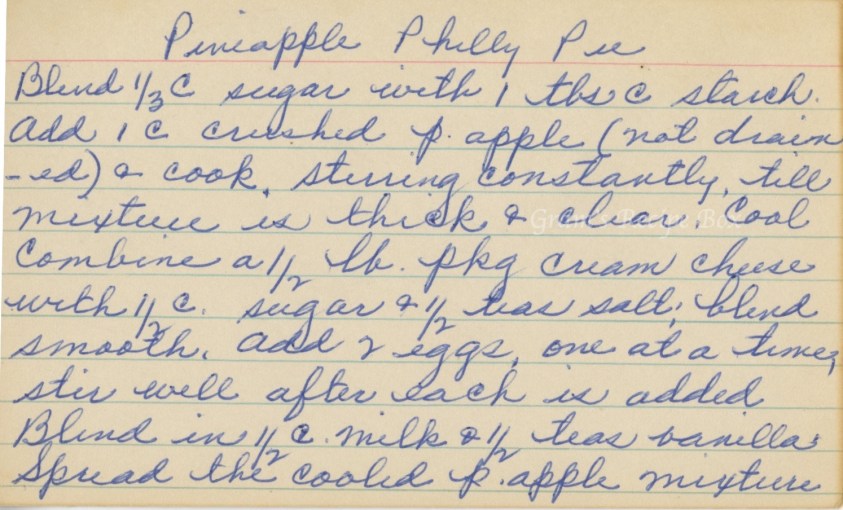 Pineapple Philly Pie
Blend 1/3 C sugar with 1 tbs C starch.
Add 1 C crushed p. apple (not drain
-ed) & cook, stirring constantly, till
mixture is thick & clear. Cool
Combine a 1/2 lb. pkg cream cheese
with 1/2 c. sugar & 1/2 teas salt; blend
smooth. Add 2 eggs, one at a time,
stir well after each is added
Blend in 1/2 c. milk & 1/2 teas vanilla.
Spread the cooled p. apple mixture
Gram's Recipe Box